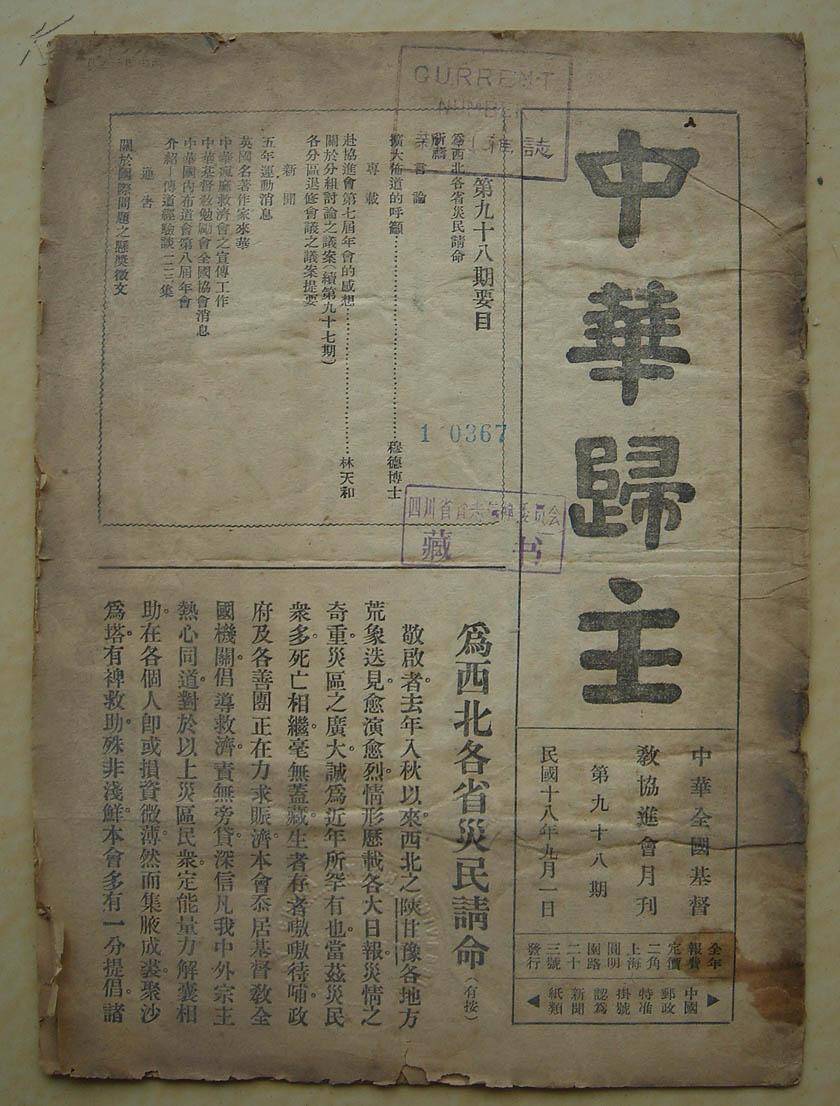 中華歸主
中華全國基督
教協進會月刊
第九十八期
民國十八年九月一日
全年
報費
定價
二角
上海
圓明
園路
二十
三號
發行
中國
郵政
特准
掛號
認為
新聞
紙類
CURRENT
NUMBER
雜誌
第九十八期要目
為西北各省災民請命
言論
擴大佈道的呼籲……穆德博士
專載
赴協進會第七屆年會的感想……林天和
關於分組討論之議案(續第九十七期)
各分區退修會議之議案提要
新聞
五年運動消息
英國名著作家來華
中華痲瘋救濟會之宣傳工作
中華基督教勉勵會全國協會消息
中華國內布道會第八屆年會
介紹一傳道經驗談一二三集
通告
關於國際問題之懸奬徵文
1 0367
四川省
藏书
爲西北各省災民請命(有按)
敬啟者去年入秋以來西北之陝甘豫各地方
荒象迭見愈演愈烈情形歷載各大日報災情之
奇重災區之廣大誠爲近年所罕有也當茲災民
衆多死亡相繼毫無蓋藏生者存者嗷嗷待哺政
府及各善團正在力求賑濟本會忝居基督教全
國機關倡導救濟責無旁貸深信凡我中外宗主
熱心同道對於以上災區民衆定能量力解囊相
助在各個人卽或損資微薄然而集腋成裘聚沙
爲塔有裨救助殊非淺鮮本會多有一分提倡諸